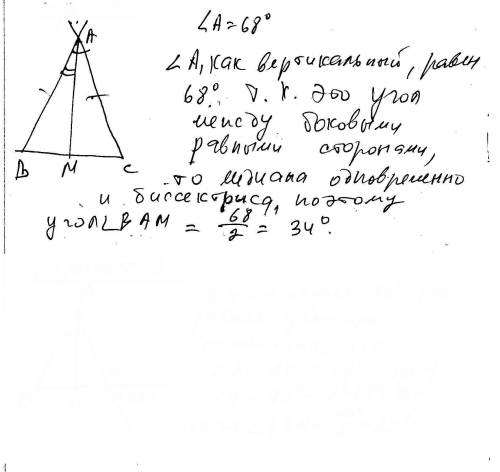 ∠A=68°
A
∠A, как вертикальный, равен
68°. Т. к. это угол
между боковыми
равными сторонами,
B M C
то медиана одновременно
и биссектриса, поэтому
угол ∠BAM = 68/2 = 34°.